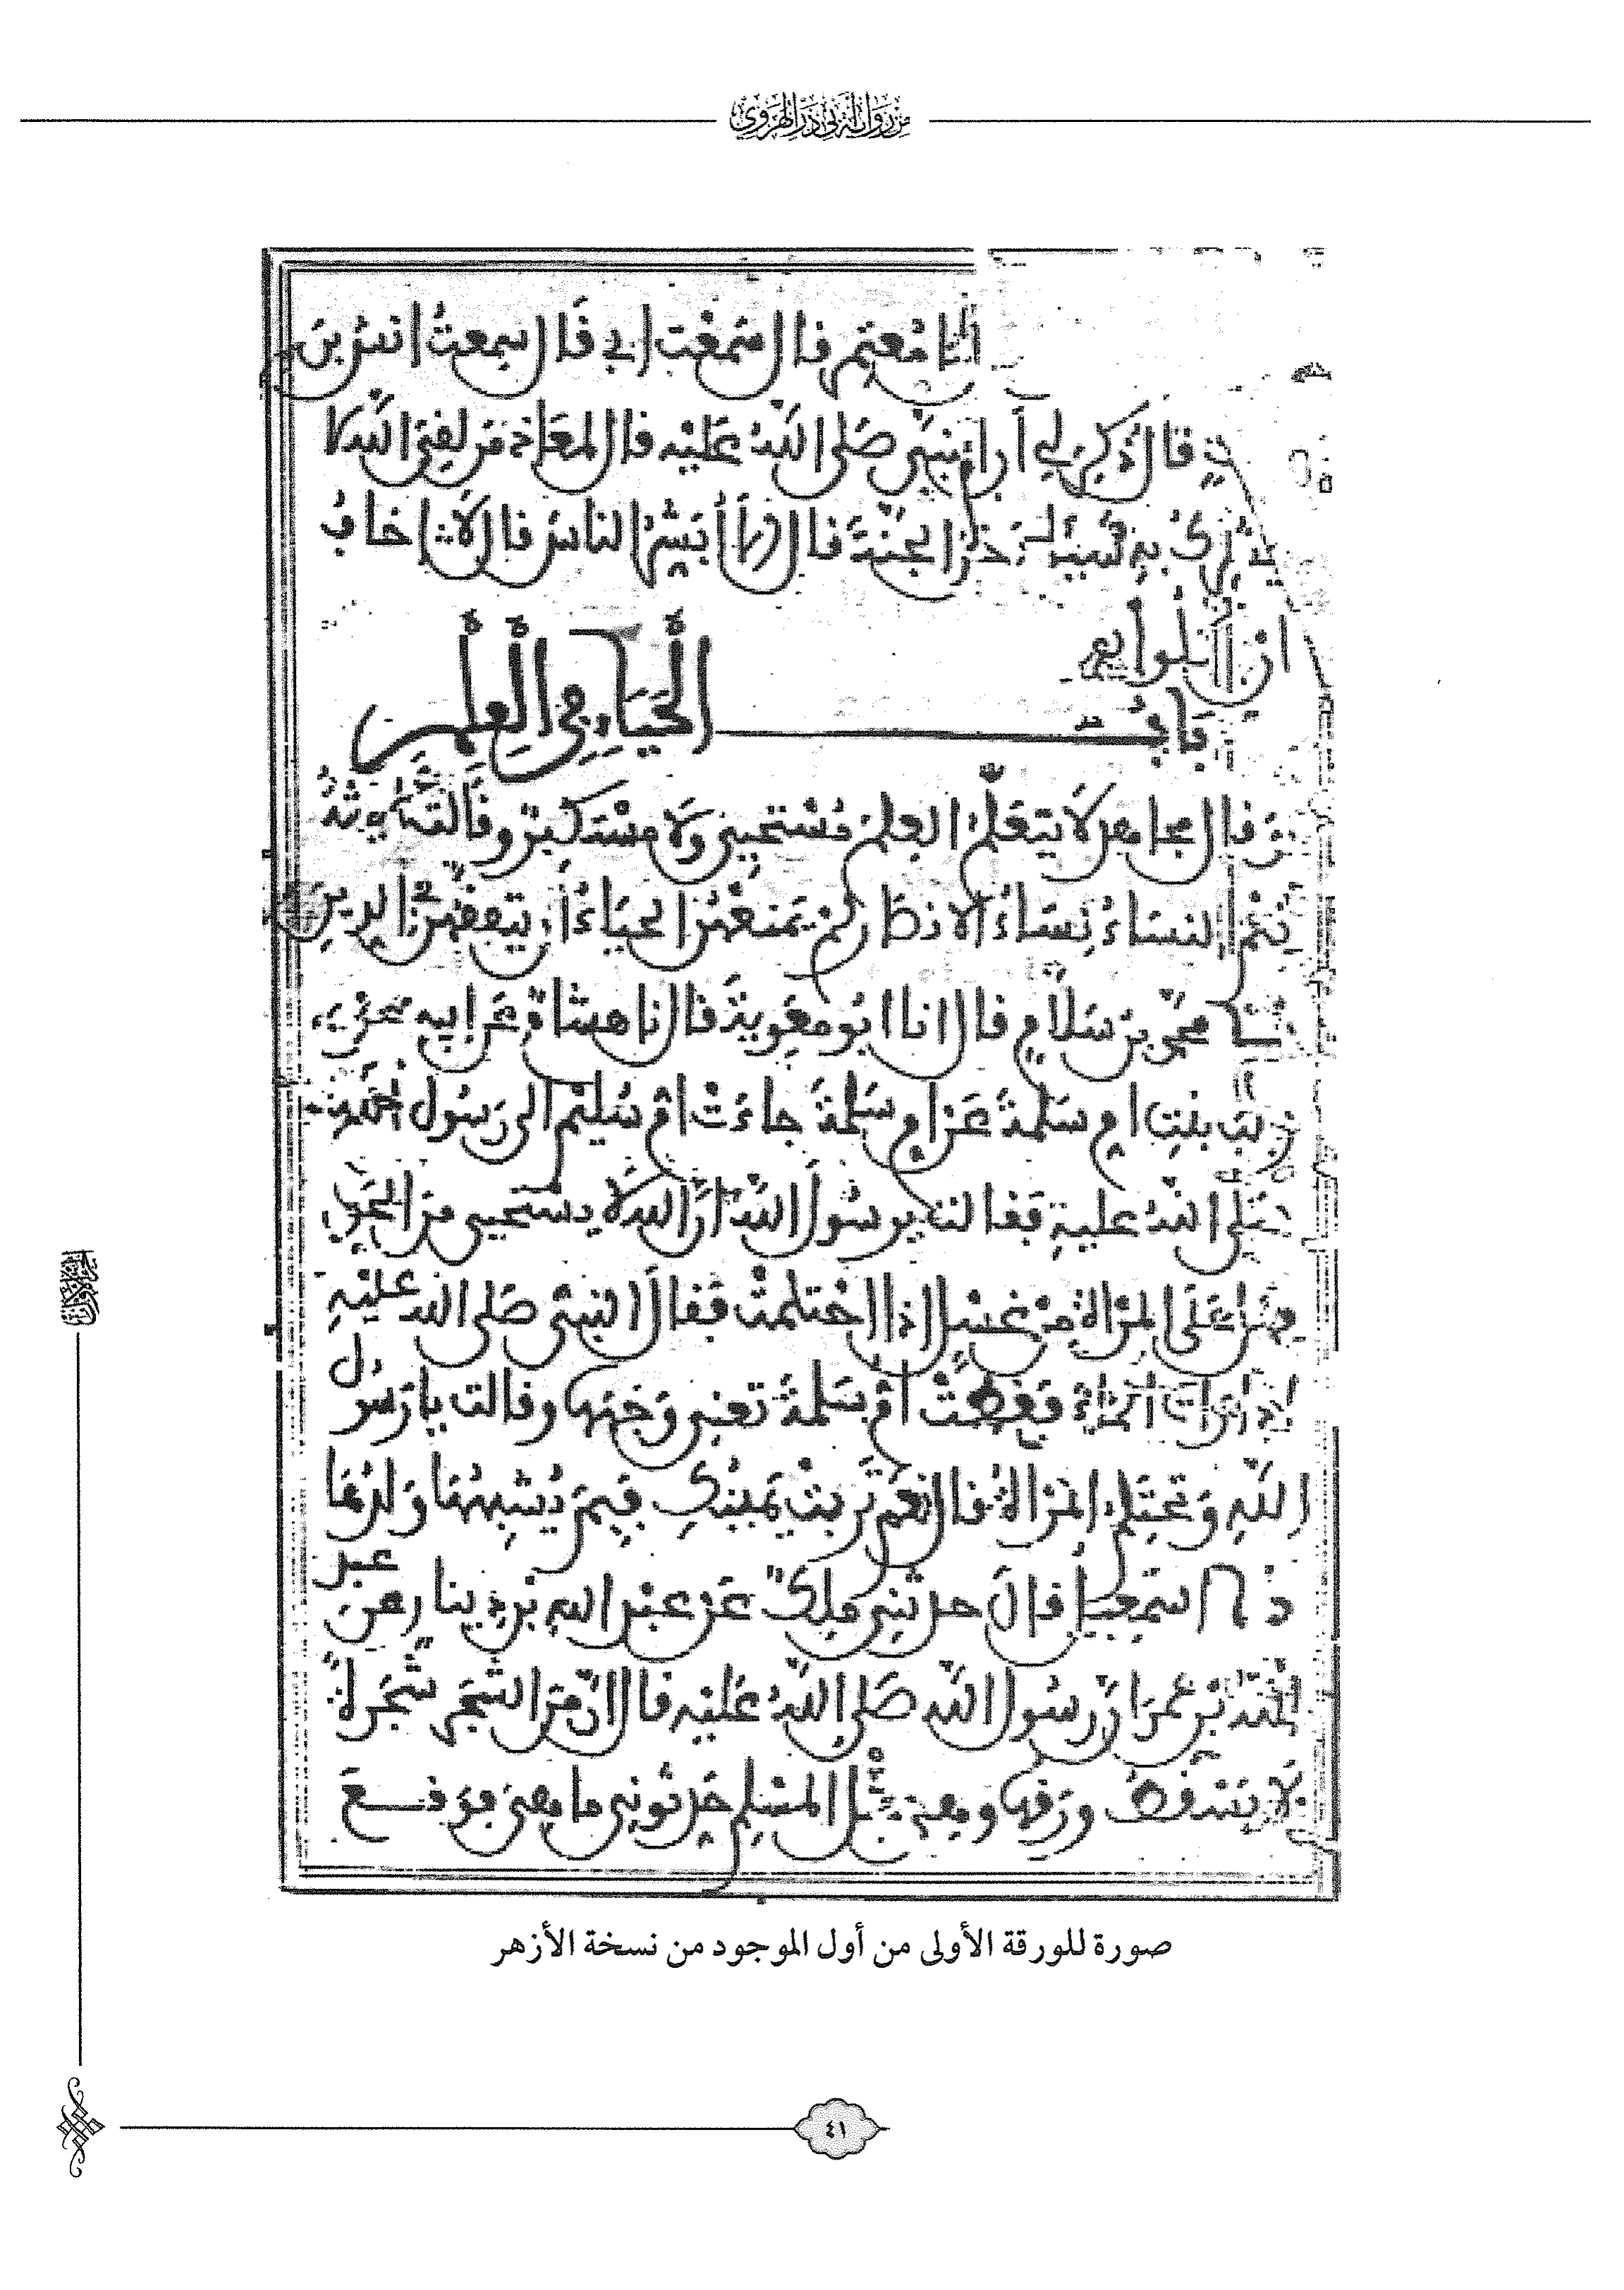 من رواية أبي ذر الهروي
انا معتمر قال سمعت ابي قال سمعت انس بن
قال ذكر لي أن النبي صلى الله عليه قال لمعاذ من لقي الله لا
يشرك به شيئا دخل الجنة قال أَلا أبشر الناس قال لا اخاف
ان يتكلوا
باب الحياء في العلم
وقال مجاهد لا يتعلم العلم مستحيي ولا مستكبر وقالت عايشة
نعم النساء نساء الانصار لم يمنعهن الحياء أن يتفقهن في الدين
محمد بن سلام قال انا ابو معوية قال نا هشام عن ابيه عن
زينب بنت ام سلمة عن ام سلمة جاءت ام سليم الى رسول الله
صلى الله عليه فقالت يرسول الله ان الله لا يستحيي من الحق
فهل على المرأة من غسل اذا احتلمت فقال النبي صلى الله عليه
اذا رأت الماء فغطت ام سلمة تعني وجهها وقالت يا رسول
الله وتحتلم المرأة قال نعم تربت يمينك فبم يشبهها ولدها
نا اسمعيل قال حدثني ملك عن عبد الله بن دينار عن عبد
الله بن عمر ان رسول الله صلى الله عليه قال ان من الشجر شجرة
لا يسقط ورقها وهي مثل المسلم حدثوني ما هي فوقع
صورة للورقة الأولى من أول الموجود من نسخة الأزهر
٤١